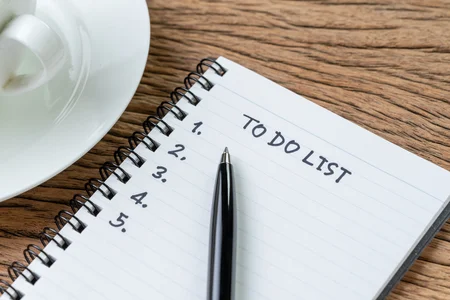 TO DO LIST
1.
2.
3.
4.
5.